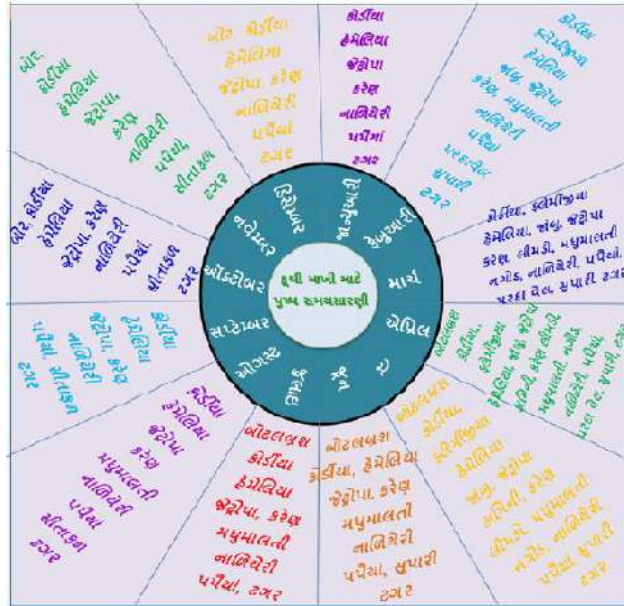 ફુચી માખી માટે
પુષ્પ સમયસારણી
જાન્યુઆરી
ફેબ્રુઆરી
માર્ચ
એપ્રિલ
મે
જૂન
જુલાઇ
ઓગસ્ટ
સપ્ટેમ્બર
ઑક્ટોબર
નવેમ્બર
ડિસેમ્બર
કોર્ડીયા
હેમેલિયા
જેટ્રોપા
કરેણ
નાળિયેરી
પપૈયાં
ટગર
કોર્ડીયા
ફ્લેમીજીયા
હેમેલિયા
જાંબુ, જેટ્રોપા
કરેણ, મધુમાલતી
નાળિયેરી
પપૈયાં
પરદાવેલ
સુપારી
ટગર
કોર્ડીયા, ફ્લેમીજીયા
હેમેલિયા, જાંબુ, જેટ્રોપા
કરેણ, લીમડો, મધુમાલતી
નગોડ, નાળિયેરી, પપૈયાં,
પરદા વેલ, સુપારી ટગર
બોટલબ્રશ
કોર્ડીયા,
ફ્લેમીજીયા
હેમેલિયા, જાંબુ, જેટ્રોપા
કામિની, કરેણ, લીમડો,
મધુમાલતી, નગોડ,
નાળિયેરી, પપૈયાં
પરદા વેલ, સુપારી, ટગર
બોટલબ્રશ
કોર્ડીયા,
ફ્લેમીજીયા
હેમેલિયા
જાંબુ, જેટ્રોપા
કામિની, કરેણ
લીમડો, મધુમાલતી
નગોડ, નાળિયેરી
પપૈયાં સુપારી
ટગર
બોટલબ્રશ
કોર્ડીયા, હેમેલિયા
જેટ્રોપા, કરેણ
મધુમાલતી
નાળિયેરી
પપૈયાં, સુપારી
ટગર
બોટલબ્રશ
કોર્ડીયા
હેમેલિયા
જેટ્રોપા, કરેણ
મધુમાલતી
નાળિયેરી
પપૈયાં, ટગર
કોર્ડીયા
હેમેલિયા
જેટ્રોપા
કરેણ
મધુમાલતી
નાળિયેરી
પપૈયાં
સીતાફળ
ટગર
કોર્ડીયા
હેમેલિયા
જેટ્રોપા, કરેણ
નાળિયેરી
પપૈયાં, સીતાફળ
ટગર
બોર, કોર્ડીયા
હેમેલિયા
જેટ્રોપા, કરેણ
નાળિયેરી
પપૈયાં,
સીતાફળ
ટગર
બોર,
કોર્ડીયા
હેમેલિયા
જેટ્રોપા,
કરેણ
નાળિયેરી
પપૈયાં,
સીતાફળ
ટગર
બોર, કોર્ડીયા
હેમેલિયા
જેટ્રોપા, કરેણ
નાળિયેરી
પપૈયાં
ટગર